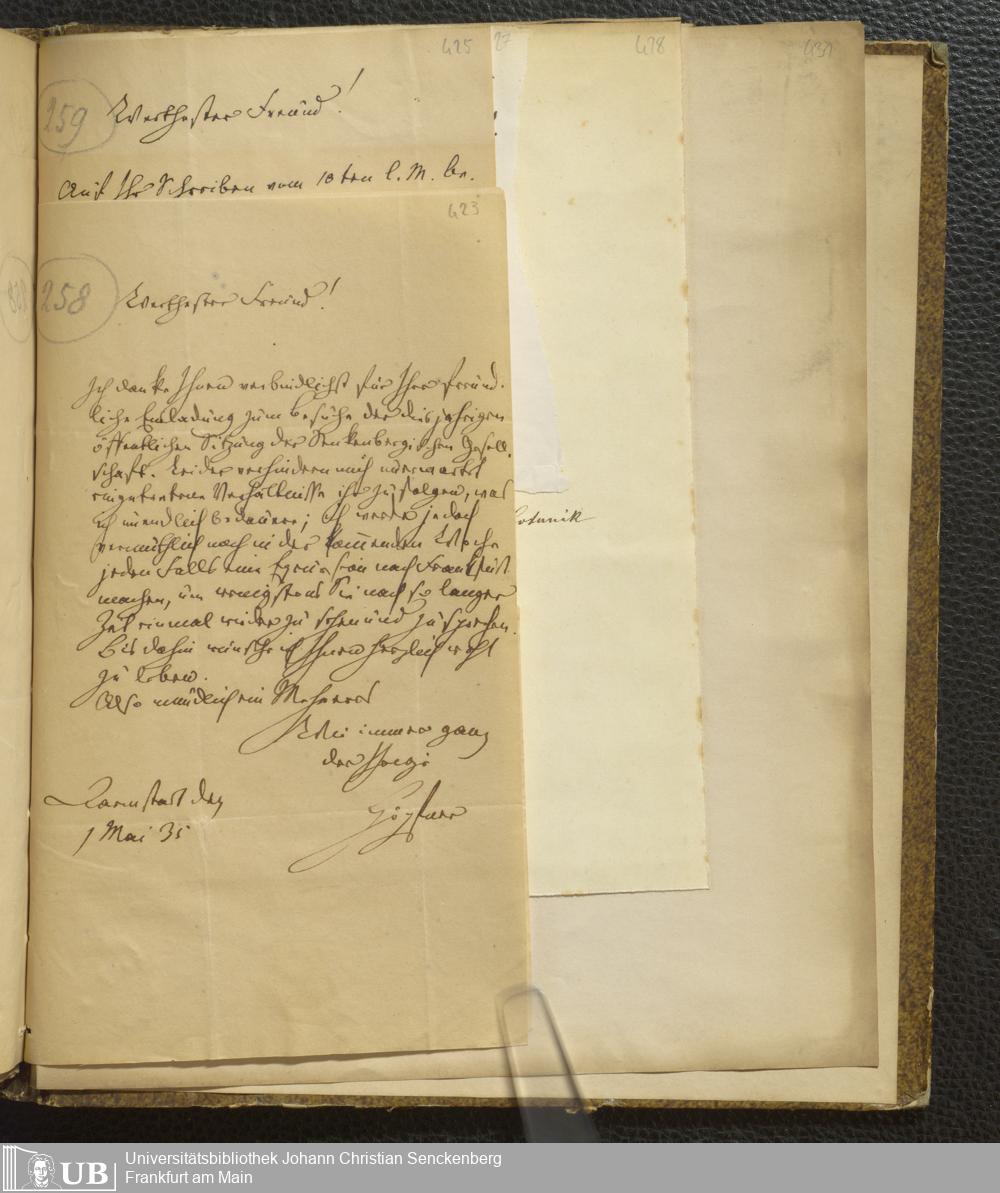 425
27
428
431
259
Werthester Freund!
Auf Ihr Schreiben vom 18ten l. M. be-
423
258
Werthester Freund!
Ich danke Ihnen verbindlichst für Ihre freund-
liche Einladung zum Besuche der diesjährigen
öffentlichen Sitzung der Senkenbergischen Gesell-
schaft. Leider verhindern mich unerwartet
eingetretene Verhältnisse ihr zu folgen, was
ich unendlich bedauere; ich werde jedoch
vermuthlich noch in der kommenden Woche
jeden Falls eine Excursion nach Frankfurt
machen, um wenigstens Sie nach so langer
Zeit einmal wieder zu sehen und zu sprechen.
Bis dahin wünsche ich Ihnen herzlich wohl
zu leben.
Also mündlich ein Mehreres
Wie immer ganz
der Ihrige
Botanik
Darmstadt den
1 Mai 35
Universitätsbibliothek Johann Christian Senckenberg
Frankfurt am Main
UB